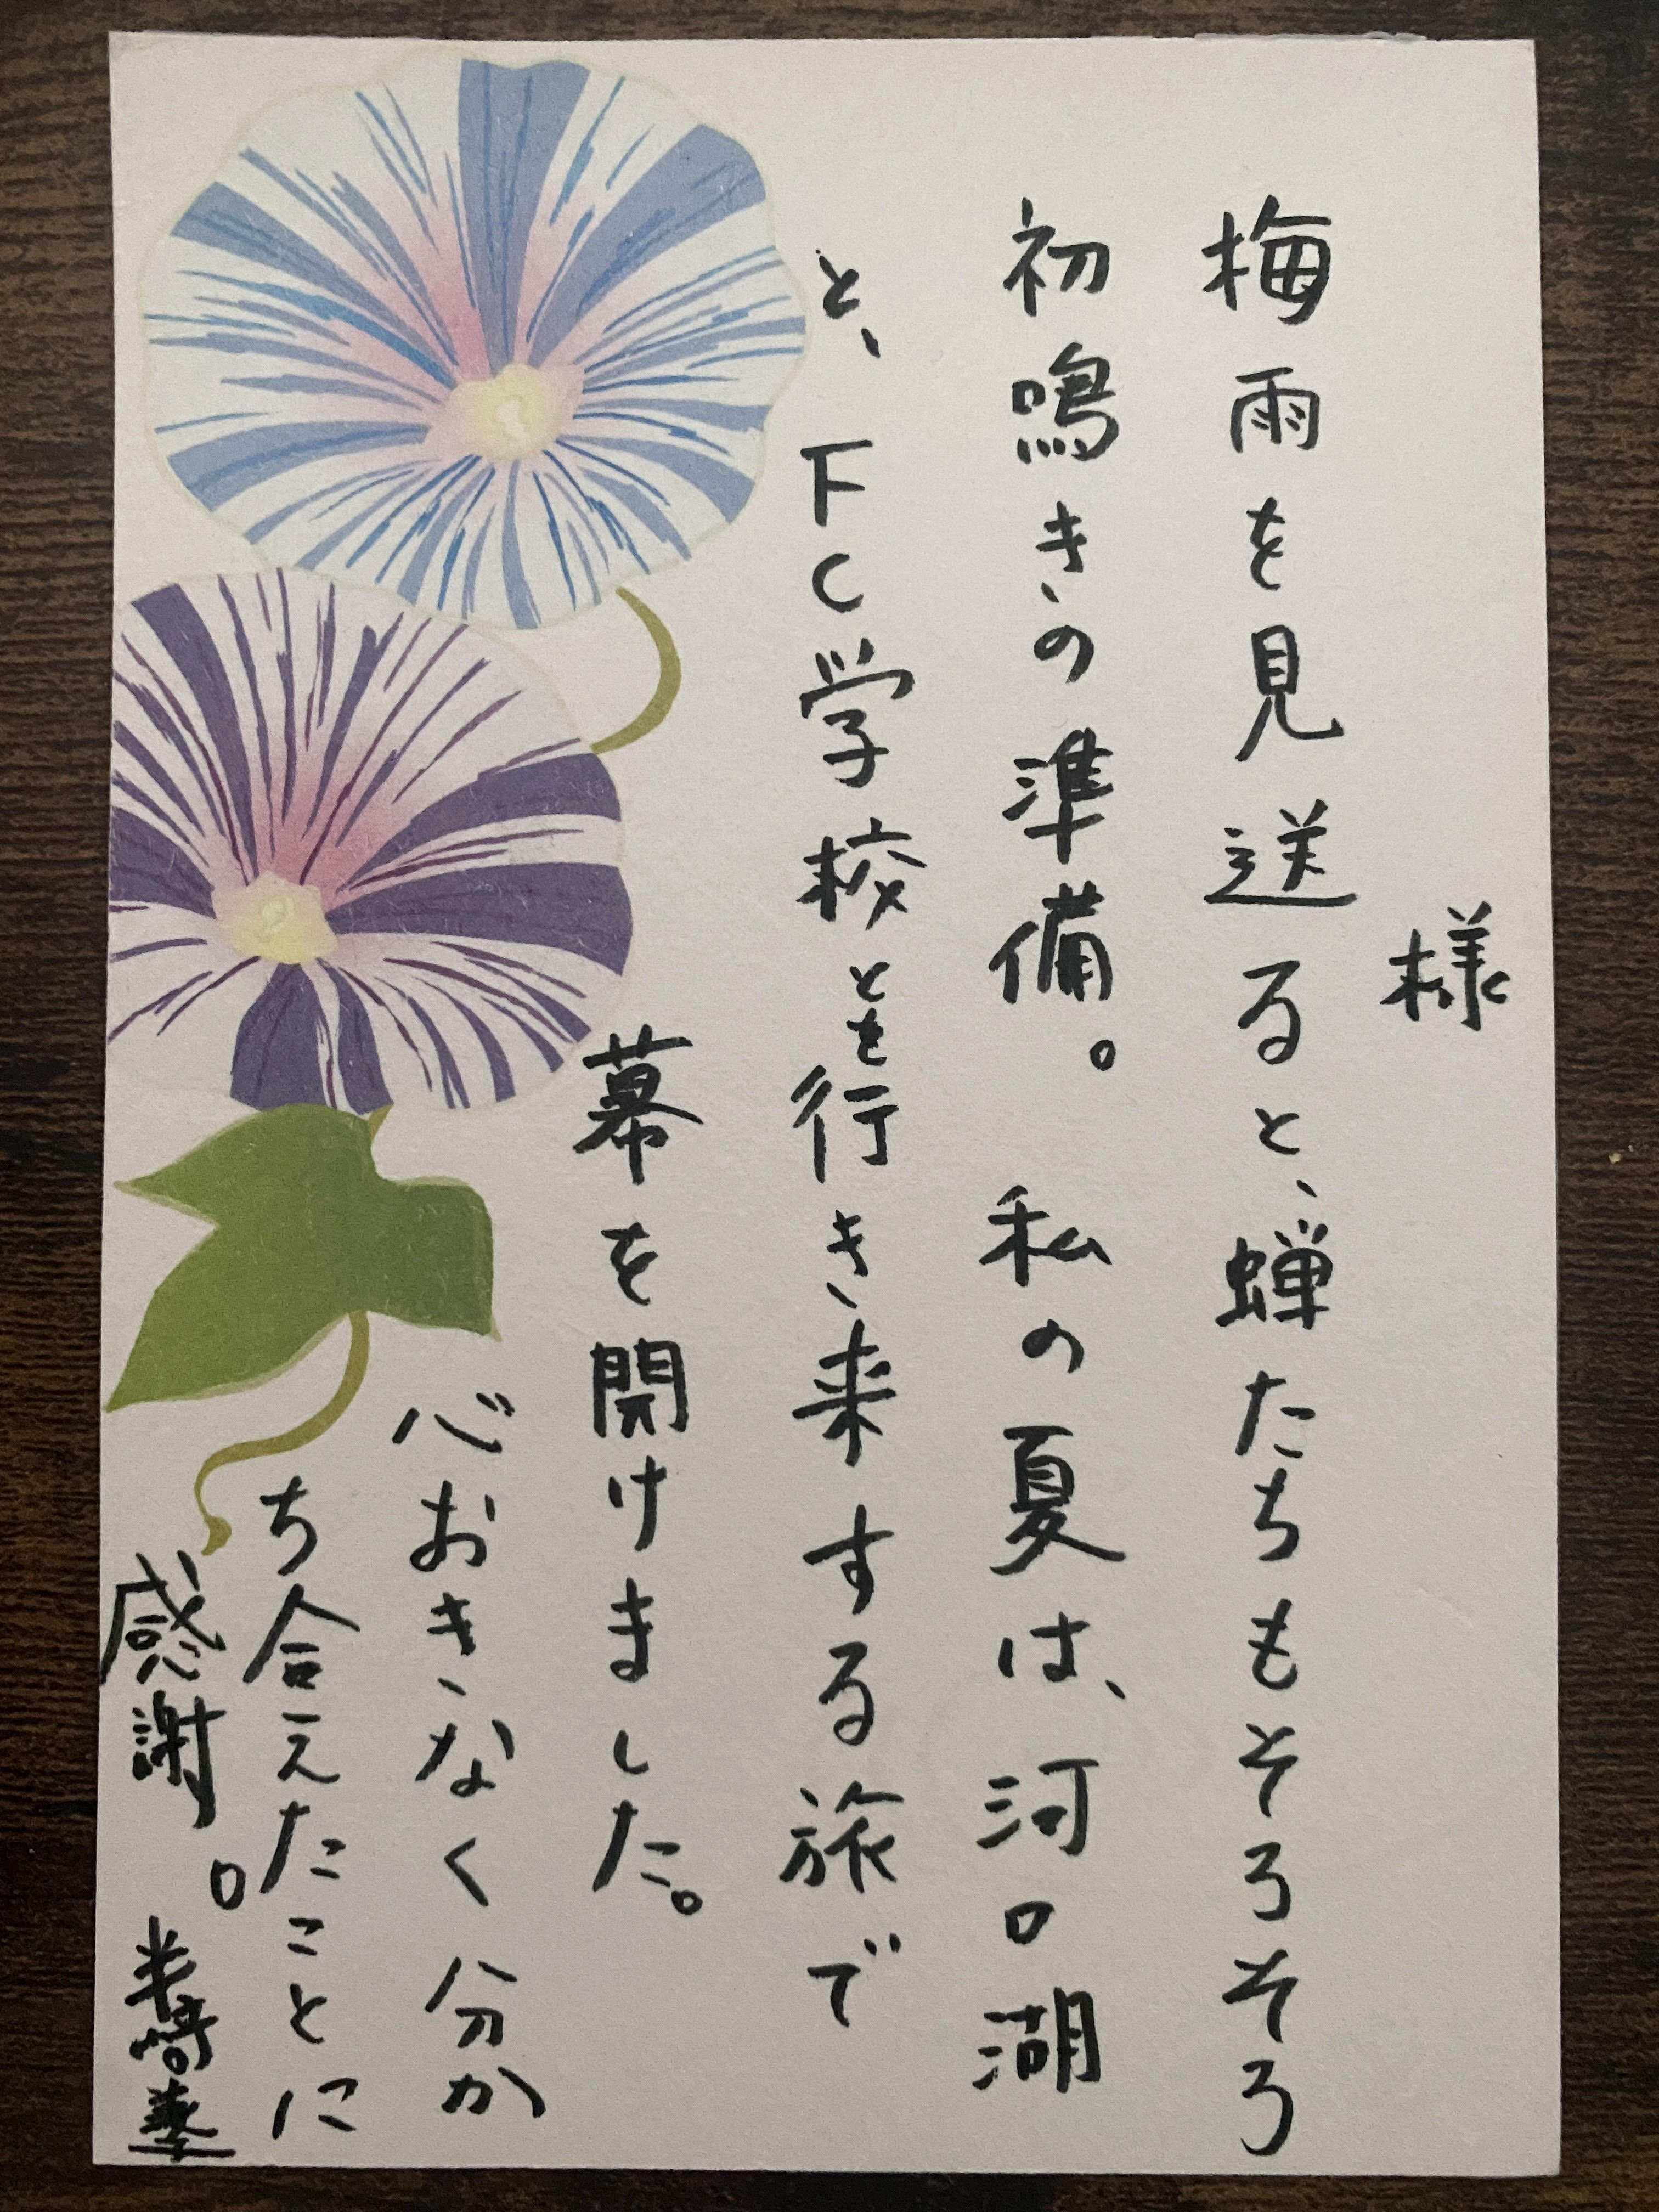 様
梅雨を見送ると、蝉たちもそろそろ
初鳴きの準備。私の夏は、河口湖
と、FC学校とを行き来する旅で
幕を開けました。
心おきなく分か
ち合えたことに
感謝。
半崎美